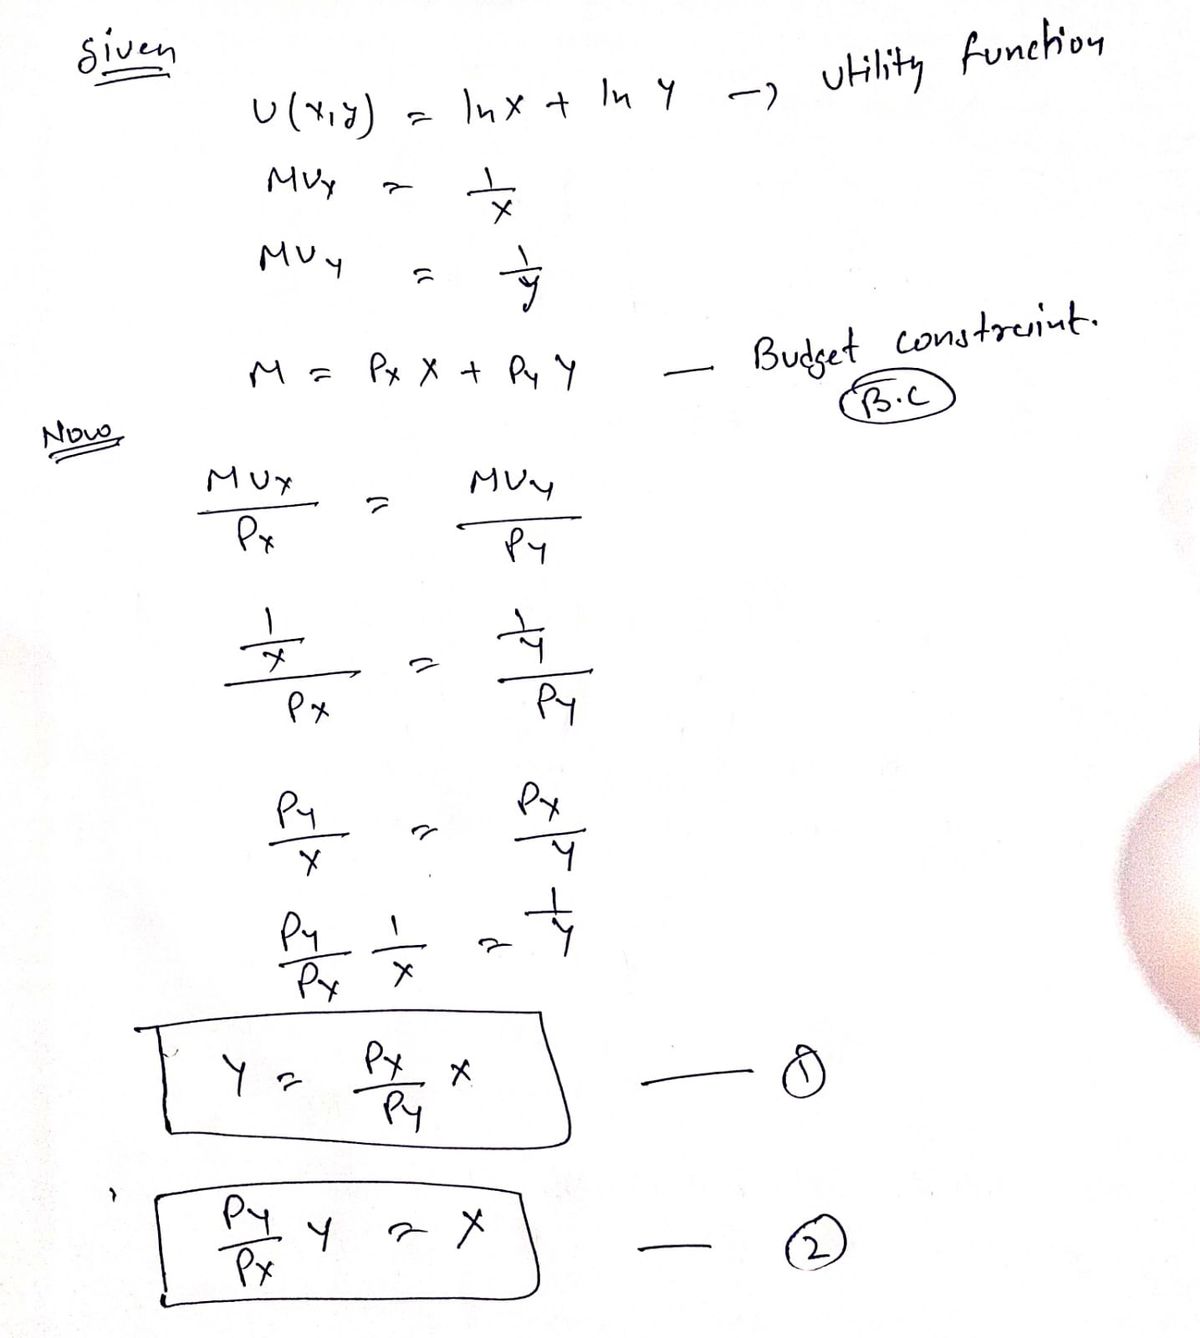 Given
U(x,y) = ln x + ln y → utility function
MUx = 1/x
MUy = 1/y
M = Px X + Py Y — Budget constraint.
B.C
Now
MUx/Px = MUy/Py
(1/x)/Px = (1/y)/Py
Py/x = Px/y
Py/Px 1/x = 1/y
Y = Px/Py x — ①
Py/Px Y = X — ②